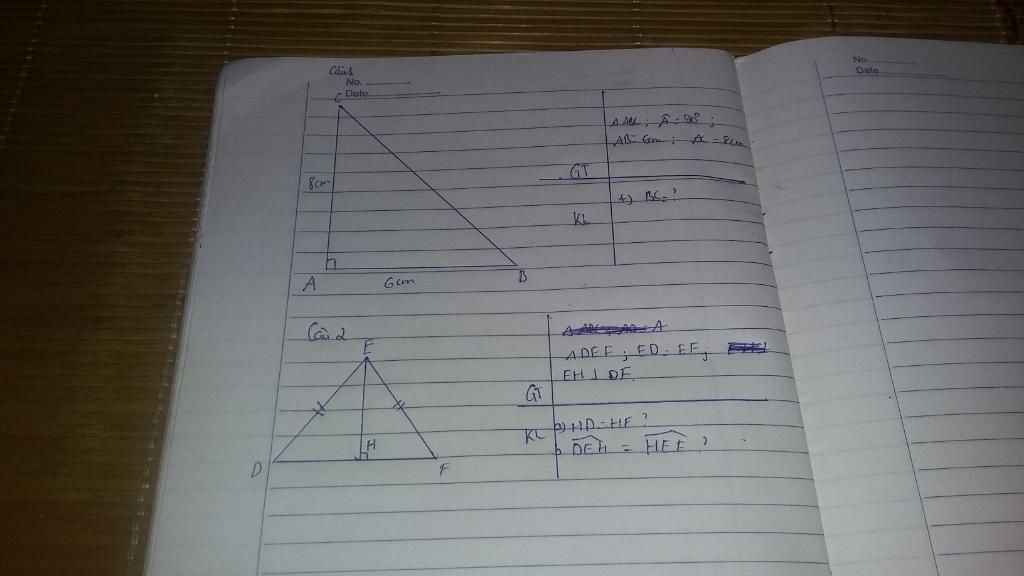 Câu 1
No.
Date
C
8cm
A
6cm
B
Δ ABC ; Â = 90° ;
AB = 6cm ; AC = 8cm
GT
+) BC = ?
KL
Câu 2
E
D
H
F
ΔDEF ; ED = EF ;
EH ⊥ DF
GT
KL
a) HD = HF ?
b) DEH = HEF ?
No.
Date